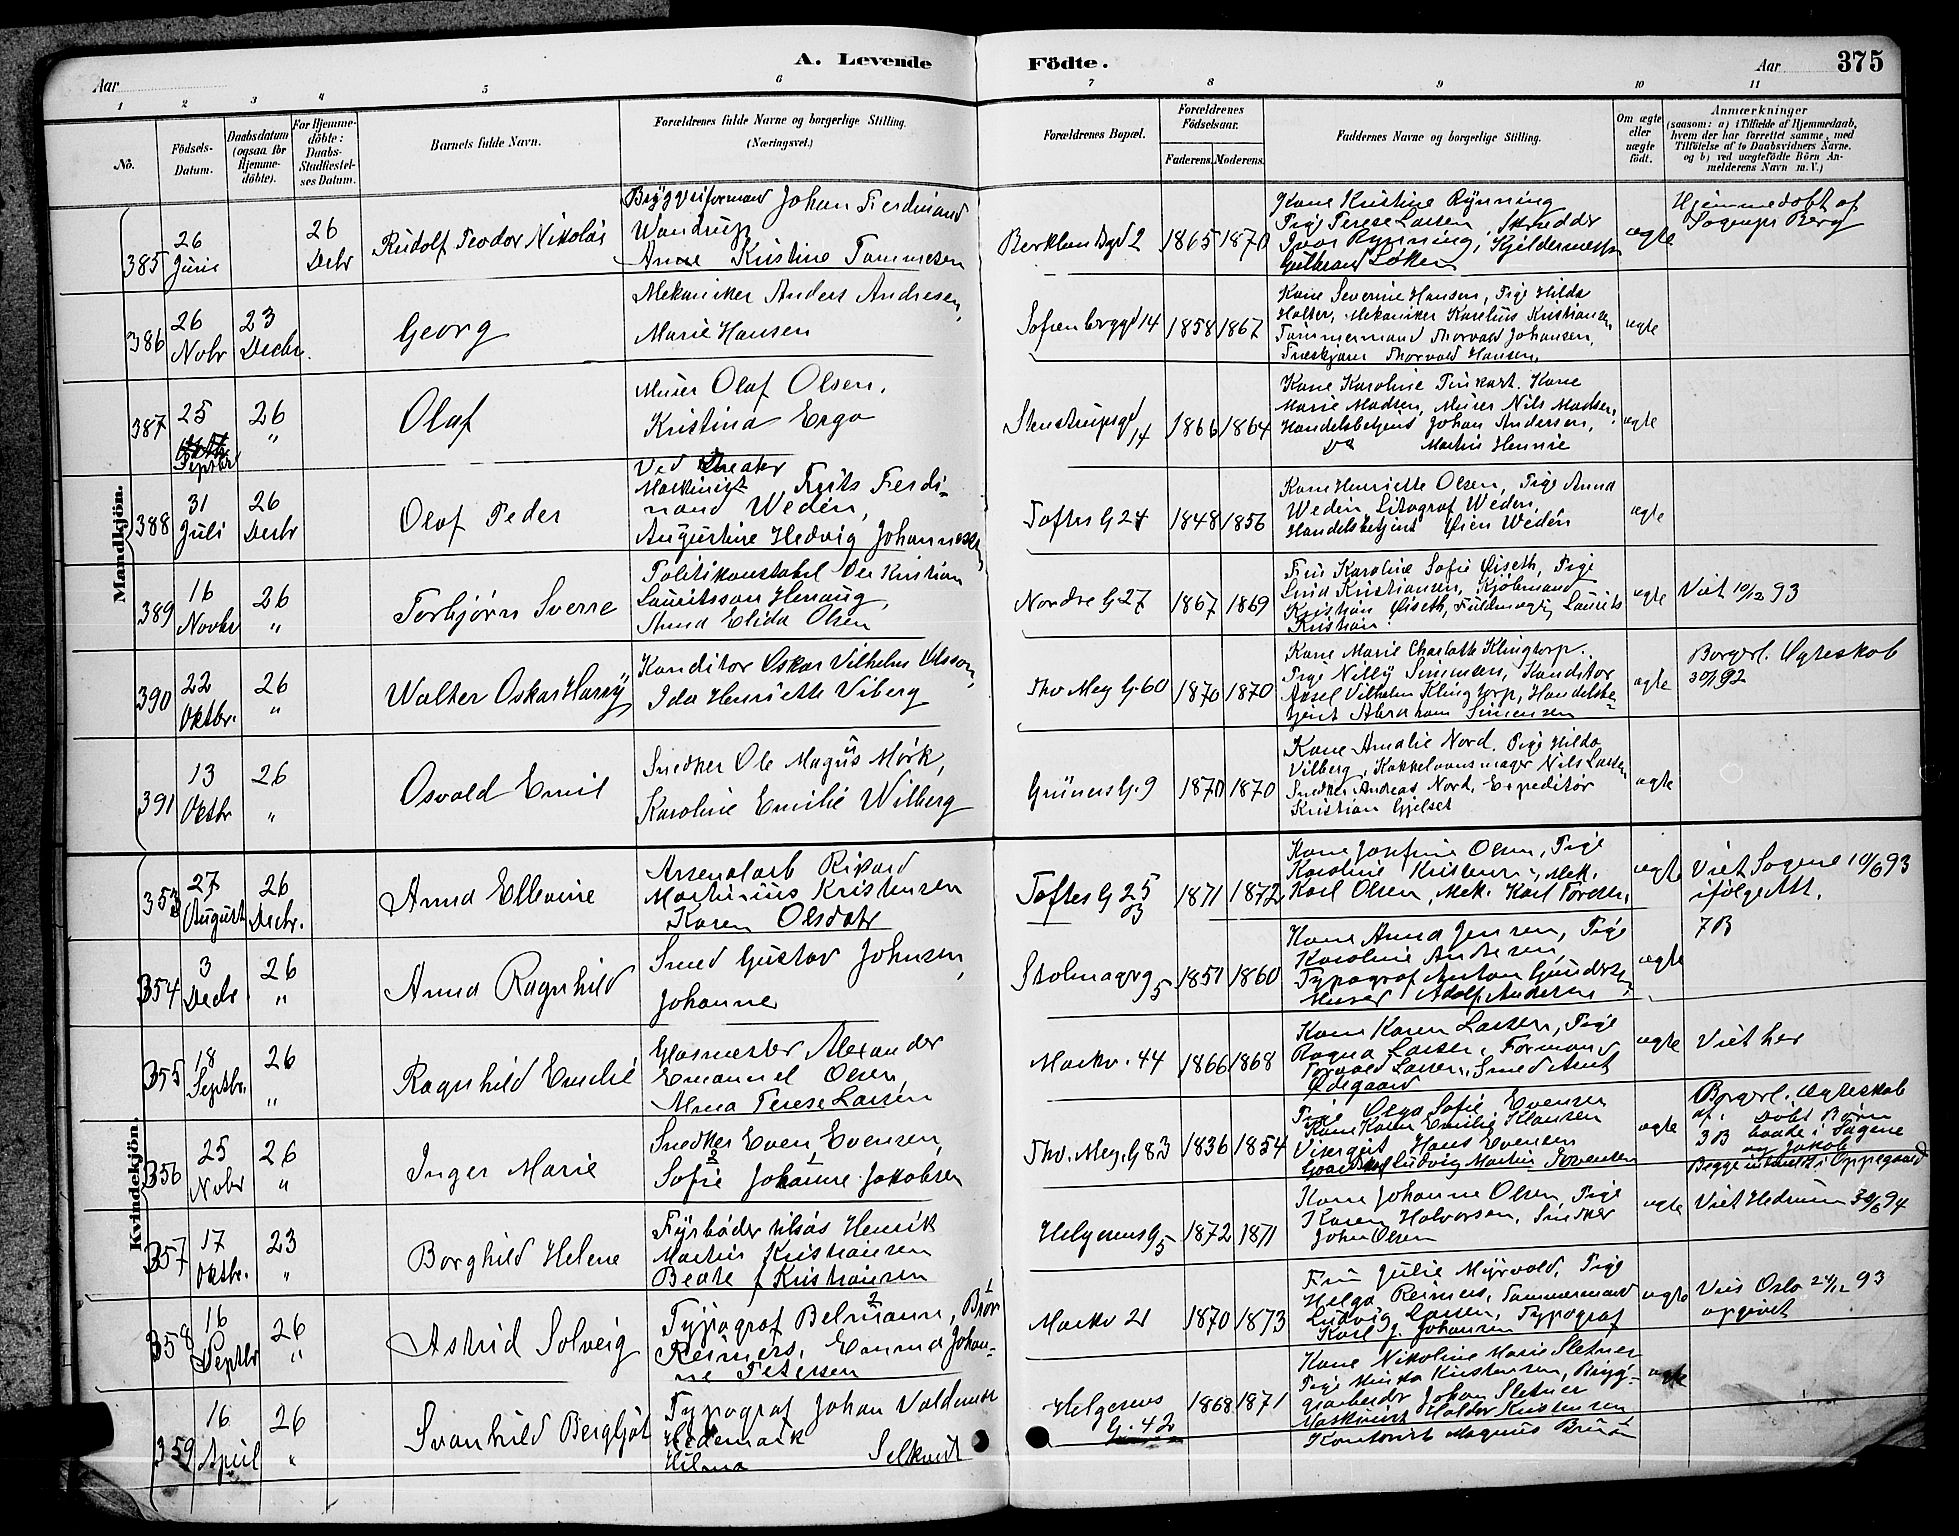 A. Levende Födte.
375
Aar
Aar
1 2 3 4 5 6 7 8 9 10 11
No.
Födsels-
Datum.
Daabsdatum
(ogsaa for
Hjemme-
döbte).
For Hjemme-
döbte:
Daabs-
Stadfæstel-
ses Datum.
Barnets fulde Navn.
Forældrenes fulde Navne og borgerlige Stilling.
(Næringsvei.)
Forældrenes Bopæl.
Forældrenes
Födselsaar.
Faderens. Moderens.
Faddernes Navne og borgerlige Stilling.
Om ægte
eller
uægte
födt.
Anmærkninger
(saasom: a) i Tilfælde af Hjemmedaab,
hvem der har forrettet samme, med
Tilföielse af to Daabsvidners Navne.
og b) ved uægtefödte Börn An-
melderens Navn m.V.)
Mandkjön.
385
26
Juni
26
Decbr
Rudolf Teodor Nikolai
Johan Ferdinand
Wandrup
Anne Kristine Tommesen
2
1865 1870
Kone Kristine Rynning
Pige Terese Larsen
ægte
Hjemmedøbt af
Sognepr Berg
386
26
Nobr
23
Decbr.
Georg
Mekaniker Anders Andresen,
Marie Hansen
Sofienberggd 14
1858 1867
Kone Severine Hansen, Pige Hilda
Halter, Mekaniker Karelius Kristiansen,
Tømmermand Thorvald Johansen,
Thorvald Hansen,
ægte
387
25
Septbr
26
"
Olaf
Murer Olaf Olsen,
Kristina Ergo
Stenstrupsgd
14
1866 1864
Kone Karoline
Kone
Marie Madsen, Murer Nils Madsen,
Handelsbetjent Johan Andersen,
Do Martin Hennie
ægte
388
31
Juli
26
Decbr
Olaf Peder
Ved Theater
Maskinist Frits Ferdi-
nand Wedén,
Augustine Hedvig Johannessen
Toftes G 24
1848 1856
Kone Henriette Olsen, Pige Anna
Wedén Litograf Wedén,
Handelsbetjent Øien Wedén
ægte
389
16
Novbr
26
"
Torbjørn Sverre
Politikonstabel Ole Kristian
Lauritsson Henaug,
Anna Elida Olsen
Nordre G 27
1867 1869
Fru Karoline Sofie Øiseth, Pige
Kristiansen, Kjøbmand
Kristian Øiseth, Fuldmægtig Laurits
Kristian
ægte
Viet 10/12 93
390
22
Oktbr.
26
"
Walter Oskar Harry
Konditor Oskar Vilhelm Olsson,
Ida Henriette Viberg
Thv Mey G. 60
1870 1870
Kone Marie Charlotte Klingtorp.
Pige Nilly Simensen, Konditor
Axel Vilhelm Klingtorp, Handelsbe-
tjent Abraham Simensen
ægte
Borgerl. Ægteskab
92
391
13
Oktbr
26
"
Osvald Emil
Snedker Ole Magnus Mørk,
Karoline Emilie Wilberg
Grüners G. 9
1870 1870
Kone Amalie Nord. Pige Hilda
Vilberg, Kakkelovnsmager Nils Larsen
Snedker Andreas Nord, Expeditør
Kristian Gjelset
ægte
Kvindekjön.
353
27
August
26
Decbr.
Anna Ellevine
Arsenalarb Rikard
Martinius Kristensen
Karen Olsdatr
Toftes G 25
B
1871 1872
Kone Josefine Olsen, Pige
Karoline Kristensen, Mek.
Karl Olsen, Mek. Karl
ægte
Viet Sagene 10/6 93
ifølge Att.
7B
354
3
Decbr
26
"
Anna Ragnhild
Smed Gustav Johnsen,
Johanne
5
1851 1860
Kone Anna Jensen, Pige
Karoline Andersen,
Typograf Anton Gundersen,
Murer Adolf Andersen
ægte
355
18
Septbr.
26
"
Ragnhild Emilie
Glasmester Alexander
Emanuel Olsen,
Anna Terese Larsen
Markv. 44
1866 1868
Kone Karen Larsen, Pige
Ragna Larsen, Formand
Torvald Larsen, Smed Arnt
Ødegaard
ægte
Viet her
356
25
Nobr
26
"
Inger Marie
Snedker Even Evensen,
Sofie Johanne Jakobsen
Thv. Mey. G 83
1836 1854
Pige Olga Sofie Evensen
Kone Karen Emilie Hansen
Visergut Hans Evensen
Ludvig Martin Evensen
ægte
Borgerl. Ægteskab
af. Døbt Børn
3B baade i Sagene
og Jakob
Begge indmeldt i Oppegaard
357
17
Oktbr.
23
"
Borghild Helene
Fyrbøder Henrik
Martin Kristiansen
Beate f Kristiansen
Helgesensg 5
1872 1871
Kone Johanne Olsen, Pige
Karen Halvorsen, Snedker
John Olsen
ægte
Viet Hedrum 94
358
16
Septbr
26
"
Astrid Solveig
Typograf
Reimers, Emma Johan-
ne Petersen
Markv 21
1870 1873
Fru Julie Myrvold, Pige
Helga Reimers, Tømmermand
Ludvig Larsen, Typograf
Karl J. Johansen
ægte
Viet Oslo 93
opgivet
359
16
April
26
"
Svanhild Bergljot
Typograf Johan Valdemar
Hedemark
Hilma
Helgesens
G. 42
1868 1871
Kone Nikoline Marie Sletner
Pige
Kristensen, Brygg-
arbeider Johan Sletner
Maskinist Halder Kristensen
Kontorist Magnus Bruun
ægte